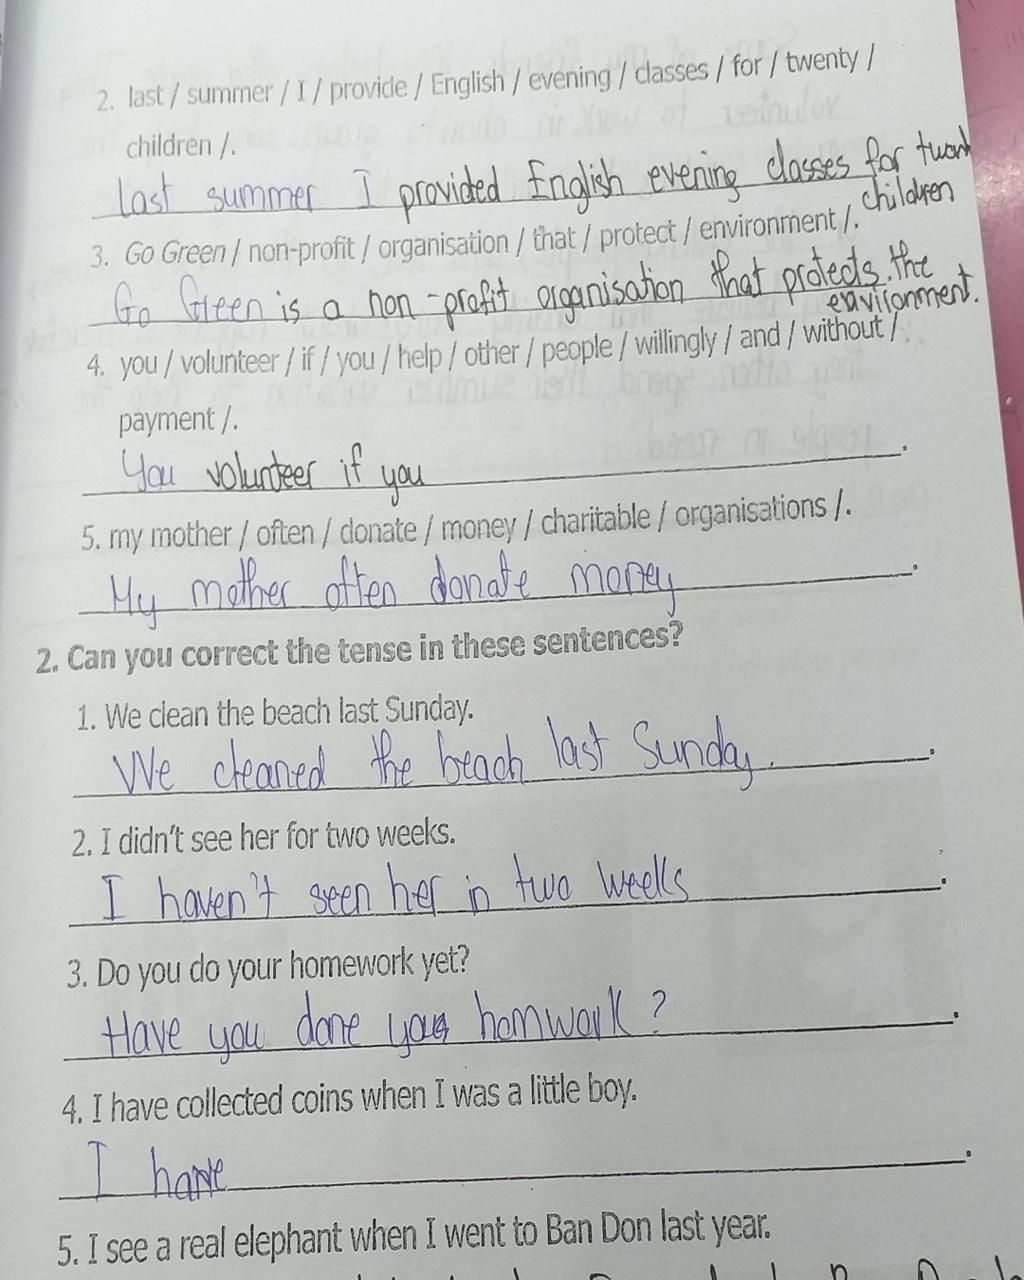 2. last / summer / I / provide / English / evening / classes / for / twenty /
children /.
last summer I provided English evening classes for
children
3. Go Green / non-profit / organisation / that / protect / environment /.
Go Green is a non-profit organisation that protects the
environment.
4. you / volunteer / if / you / help / other / people / willingly / and / without /
payment /.
You volunteer if you
5. my mother / often / donate / money / charitable / organisations /.
My mother often donate money
2. Can you correct the tense in these sentences?
1. We clean the beach last Sunday.
We cleaned the beach last Sunday.
2. I didn't see her for two weeks.
I haven't seen her in two weeks
3. Do you do your homework yet?
Have you done homwork ?
4. I have collected coins when I was a little boy.
I
5. I see a real elephant when I went to Ban Don last year.